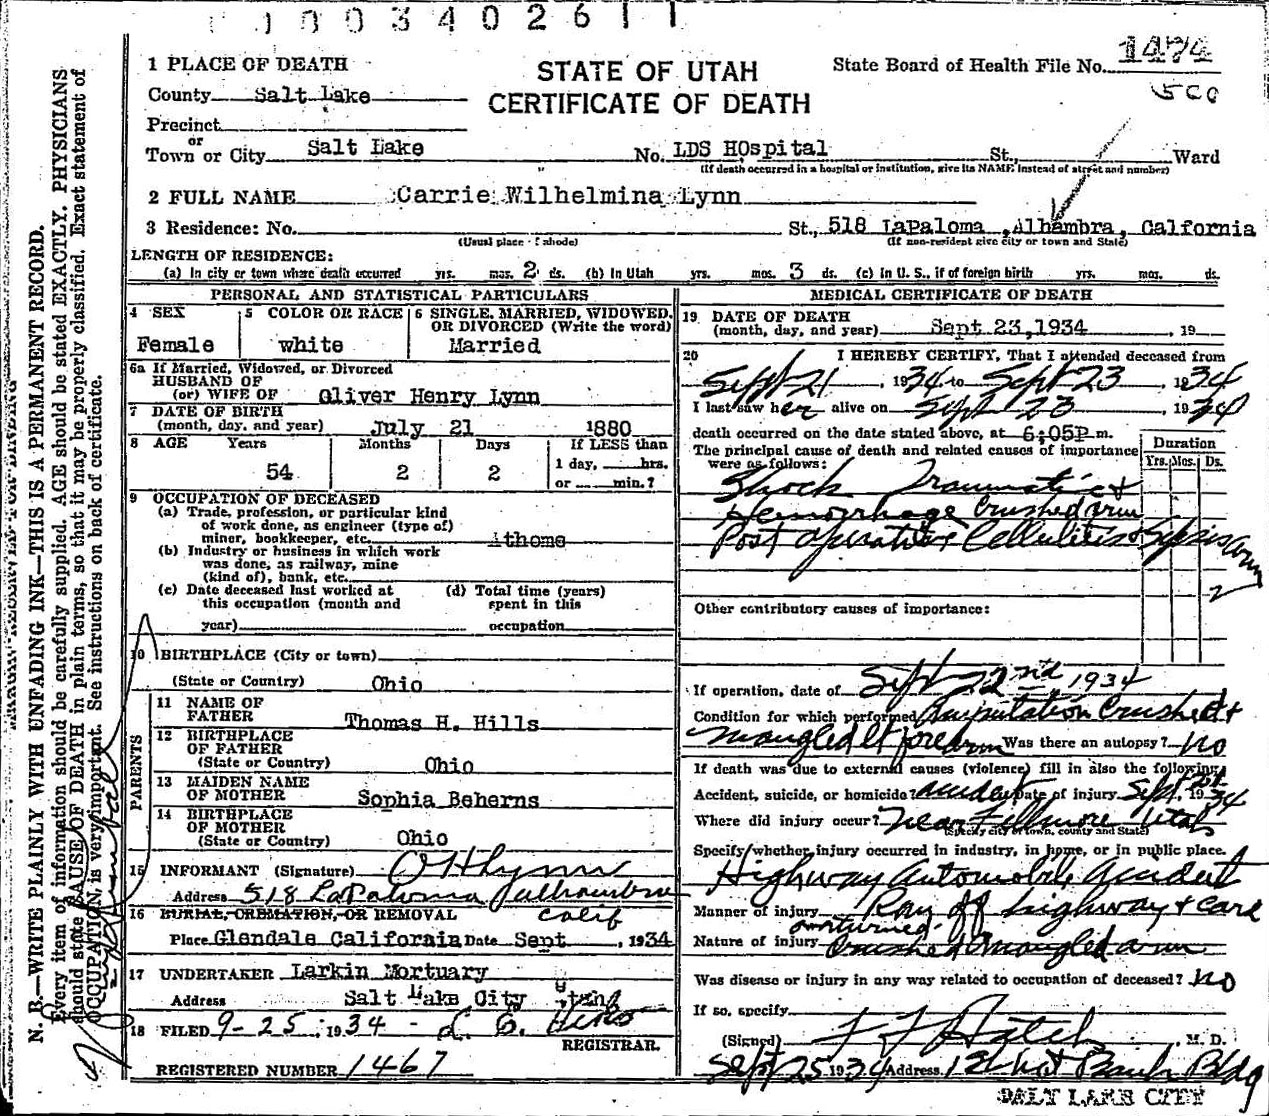 0003402611
1 PLACE OF DEATH
STATE OF UTAH
CERTIFICATE OF DEATH
State Board of Health File No. 1474
500
County Salt Lake
Precinct
or
Town or City Salt Lake No. LDS HOspital St., Ward
(If death occurred in a hospital or institution, give its NAME instead of street and number)
2 FULL NAME Carrie Wilhelmina Lynn
3 Residence: No. St., 518 LaPaloma ,Alhambra, California
(Usual place of abode) (If non-resident give city or town and State)
LENGTH OF RESIDENCE:
(a) In city or town where death occurred yrs. mos. 2 ds. (b) In Utah yrs. mos. 3 ds. (c) In U. S., if of foreign birth yrs. mos. ds.
PERSONAL AND STATISTICAL PARTICULARS
4 SEX 5 COLOR OR RACE 6 SINGLE, MARRIED, WIDOWED, OR DIVORCED (Write the word)
Female white Married
6a If Married, Widowed, or Divorced
HUSBAND OF
(or) WIFE OF Oliver Henry Lynn
7 DATE OF BIRTH
(month, day, and year) July 21 1880
8 AGE Years Months Days If LESS than
54 2 2 1 day, hrs.
or min.?
9 OCCUPATION OF DECEASED
(a) Trade, profession, or particular kind
of work done, as engineer (type of)
miner, bookkeeper, etc. Athome
(b) Industry or business in which work
was done, as railway, mine
(kind of), bank, etc.
(c) Date deceased last worked at
this occupation (month and
year)
(d) Total time (years)
spent in this
occupation
10 BIRTHPLACE (City or town)
(State or Country) Ohio
PARENTS
11 NAME OF
FATHER Thomas H. Hills
12 BIRTHPLACE
OF FATHER
(State or Country) Ohio
13 MAIDEN NAME
OF MOTHER Sophia Beherns
14 BIRTHPLACE
OF MOTHER
(State or Country) Ohio
15 INFORMANT (Signature) O H Lynn
Address 518 LaPaloma Alhambra
Calif
16 BURIAL, CREMATION, OR REMOVAL
Place Glendale California Date Sept , 1934
17 UNDERTAKER Larkin Mortuary
Address Salt Lake City Utah
18 FILED 9-25 , 1934
REGISTRAR.
REGISTERED NUMBER 1467
MEDICAL CERTIFICATE OF DEATH
19 DATE OF DEATH
(month, day, and year) Sept 23,1934 , 19
20 I HEREBY CERTIFY, That I attended deceased from
Sept 21 , 1934 to Sept 23 , 1934
I last saw her alive on Sept 23 1934
death occurred on the date stated above, at 6:05P m.
The principal cause of death and related causes of importance
were as follows:
Duration
Yrs. Mos. Ds.
Shock Traumatic &
Hemorrhage Crushed arm
Post operative Cellulitis & Sepsis arm
2
Other contributory causes of importance:
If operation, date of Sept 22nd, 1934
Condition for which performed Amputation Crushed &
mangled lt forearm Was there an autopsy? no
If death was due to external causes (violence) fill in also the following:
Accident, suicide, or homicide? accident Date of injury Sept 21 1934
Where did injury occur? near Fillmore Utah
(Specify city or town, county and State)
Specify whether injury occurred in industry, in home, or in public place.
Highway Automobile Accident
Manner of injury Ran off highway & care
overturned
Nature of injury Crushed & mangled arm
Was disease or injury in any way related to occupation of deceased? no
If so, specify
(Signed) Hatch , M. D.
Sept 25 1934 Address Bank Bldg
SALT LAKE CITY
N. B.—WRITE PLAINLY WITH UNFADING INK—THIS IS A PERMANENT RECORD.
Every item of information should be carefully supplied. AGE should be stated EXACTLY. PHYSICIANS
should state CAUSE OF DEATH in plain terms, so that it may be properly classified. Exact statement of
OCCUPATION is very important. See instructions on back of certificate.